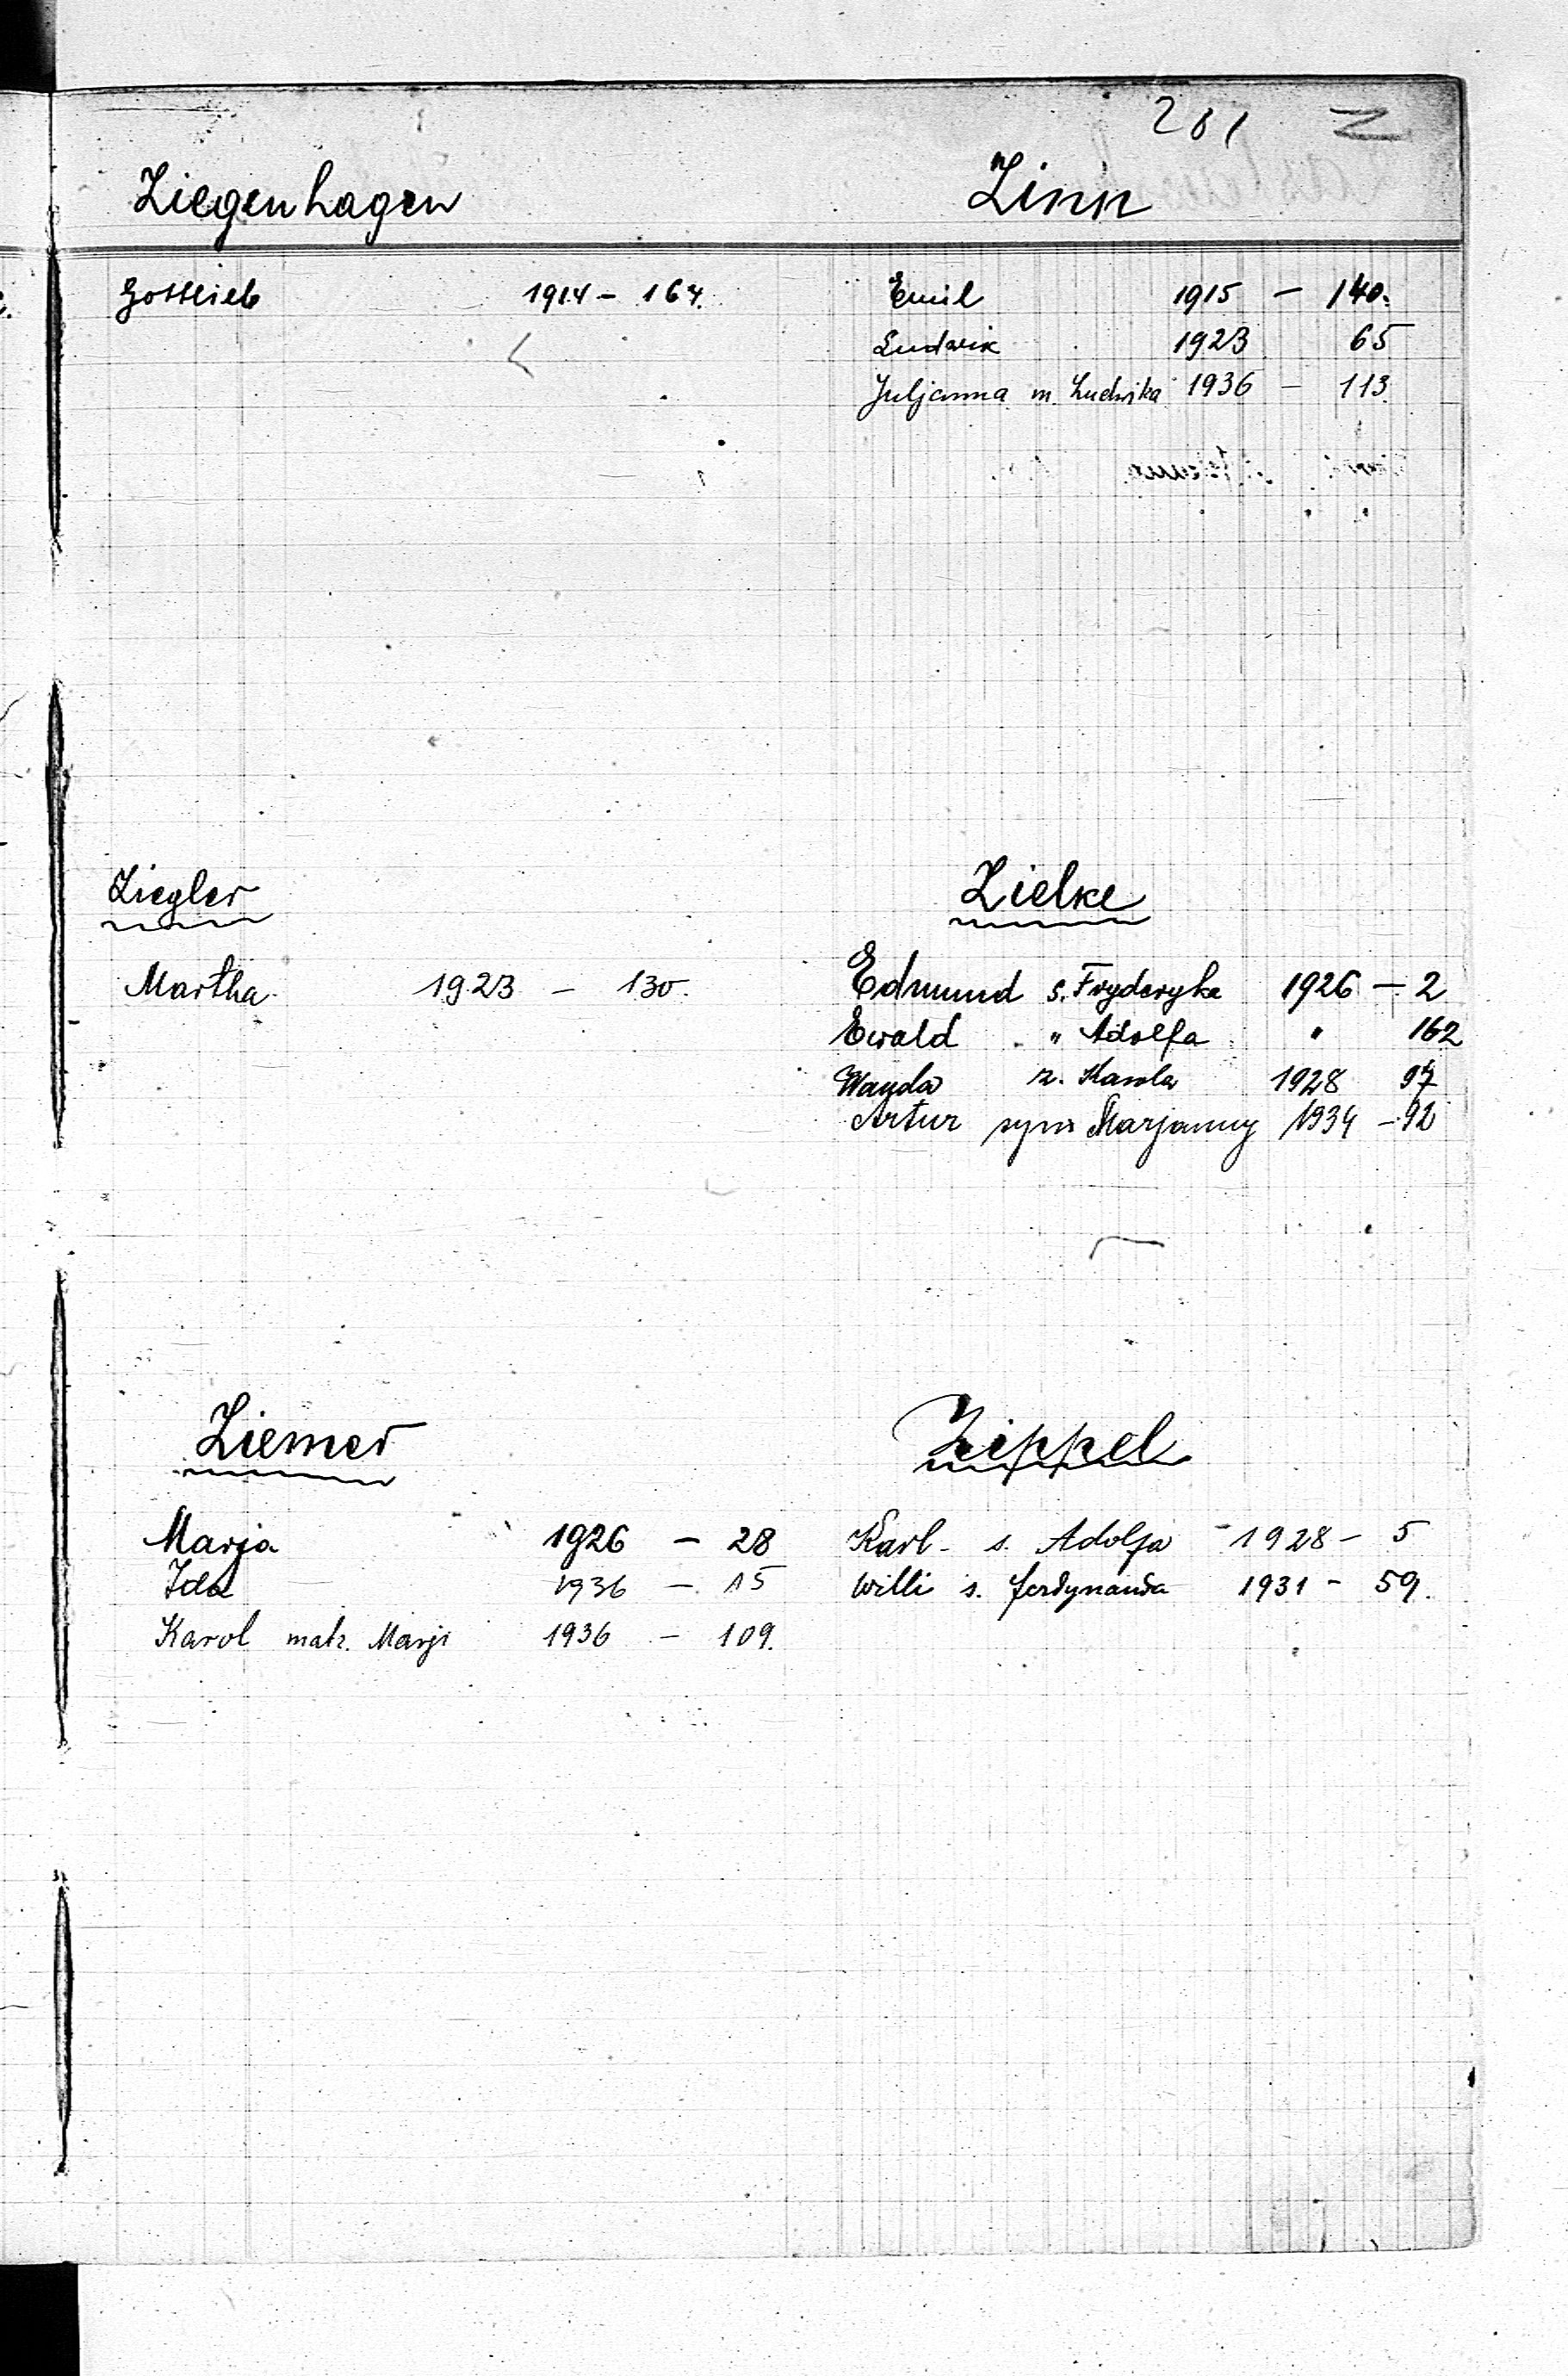 281 Z
Ziegenhagen
Gottlieb 1914 - 164.
Zinn
Emil 1915 - 140.
Ludwik 1923 65
Juljanna m. Ludwika 1936 - 113.
Ziegler
Martha. 1923 - 130.
Zielke
Edmund s. Fryderyka 1926 - 2
Ewald " Adolfa " 162
Wanda z. Karola 1928 97
Artur syn Marjanny 1934 - 92
Ziemer
Marja 1926 - 28
Ida 1936 - 15
Karol małż. Marji 1936 - 109.
Zippel
Karl - s. Adolfa - 1928 - 5
Willi s. Ferdynanda 1931 - 59.